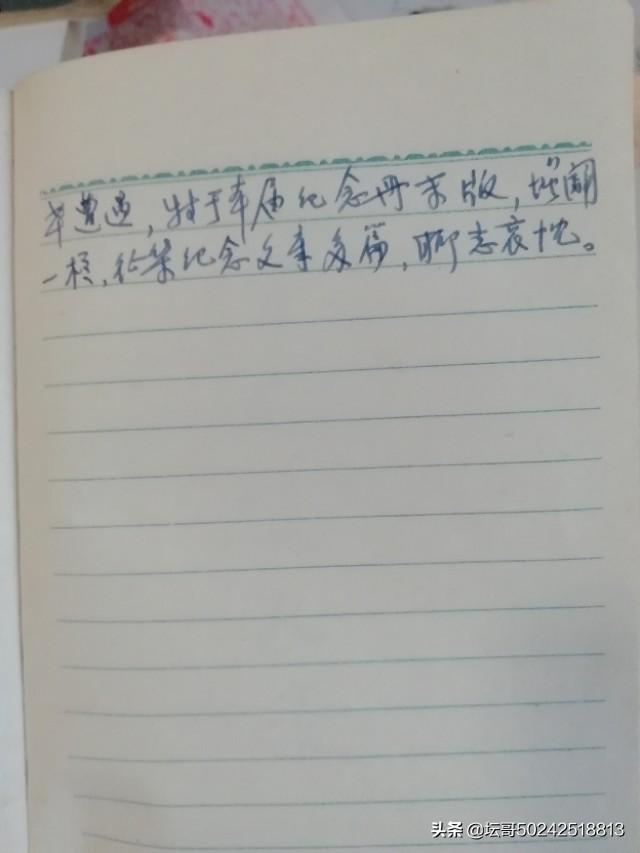 遭遇，特于本届纪念册末版，增阔
一栏，征集纪念文章多篇，聊志哀忱。
头条 @坛哥50242518813